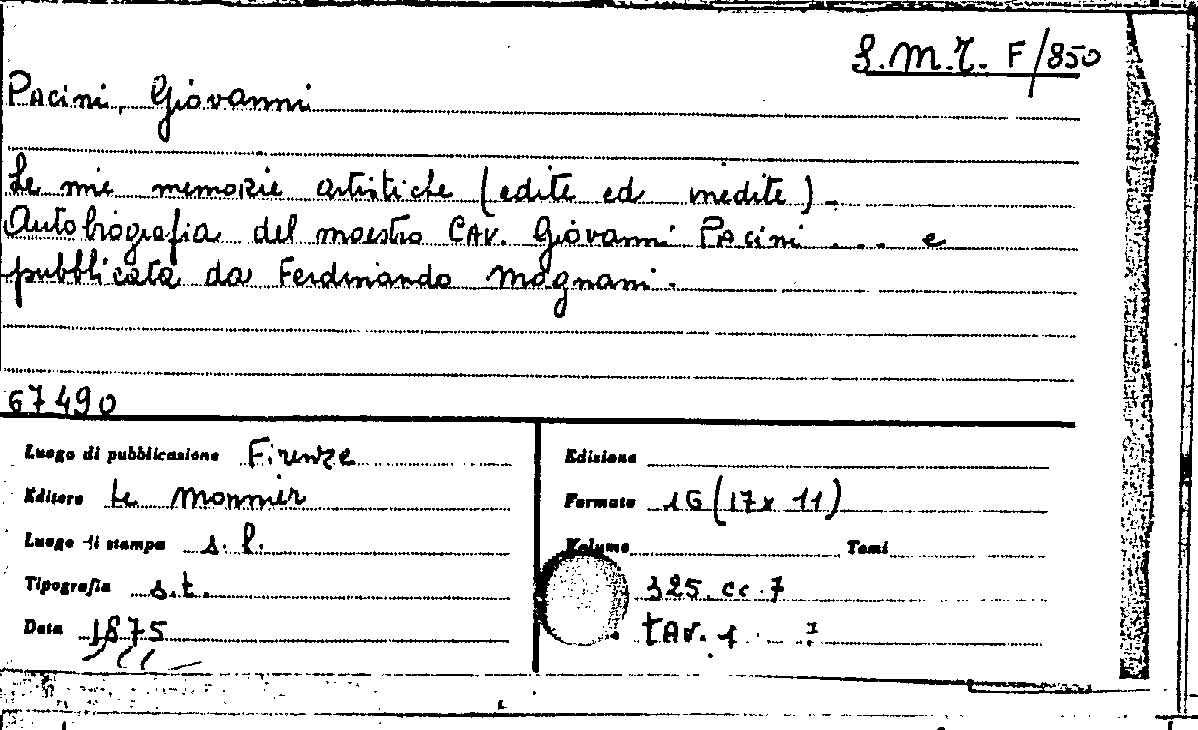 S.M.T. F/850
Pacini, Giovanni
Le mie memorie artistiche (edite ed inedite) -
Autobiografia del maestro Cav. Giovanni Pacini ... e
pubblicata da Ferdinando Magnani.
67490
Luogo di pubblicazione Firenze
Editore Le Monnier
Luogo di stampa s.l.
Tipografia s.t.
Data 1875
Edizione
Formato 16 (17x11)
Volume Tomi
325. cc. 7
tav. 1